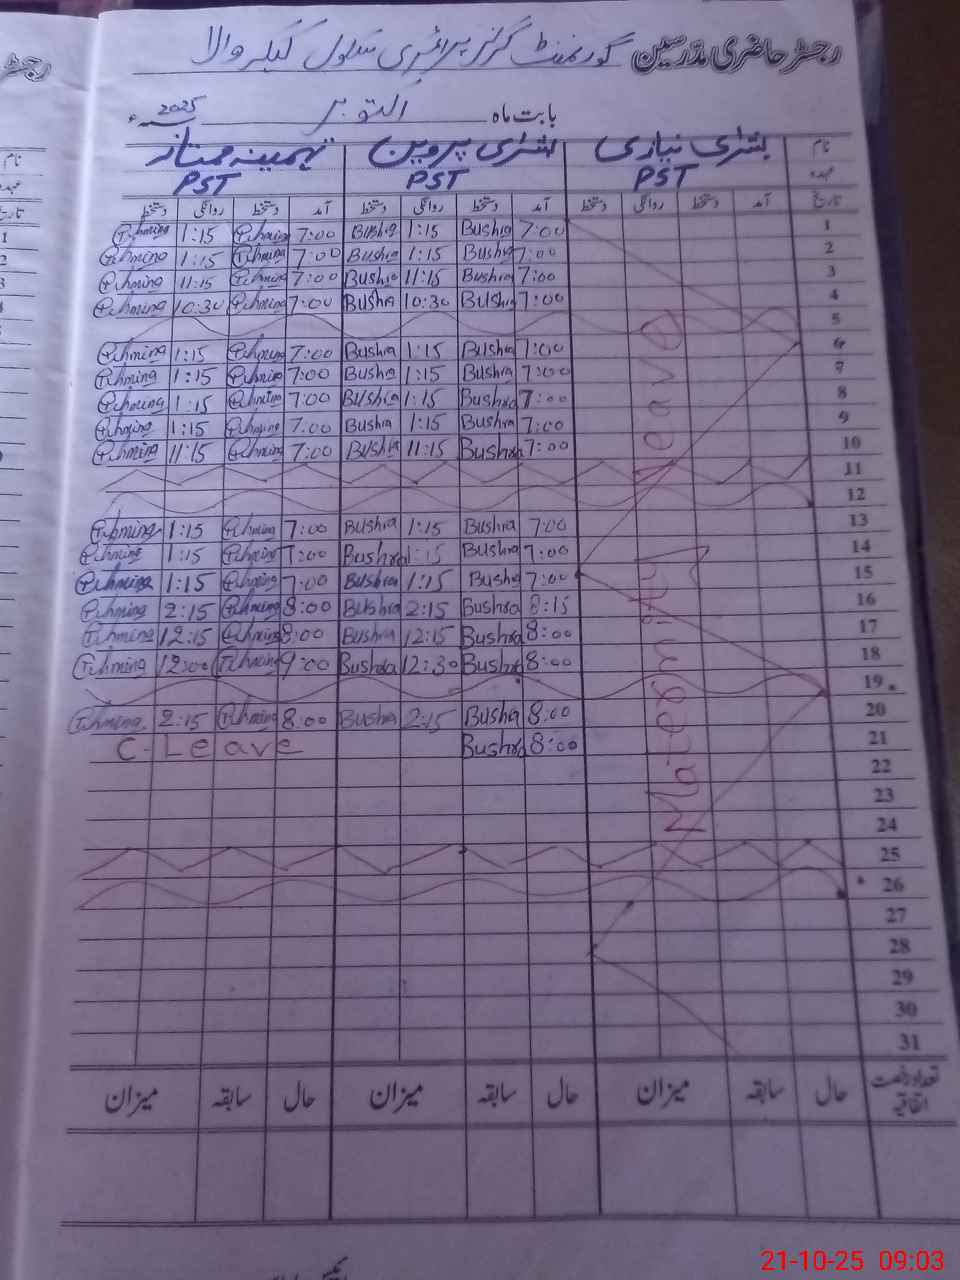 رجسٹر حاضری مدرسین گورنمنٹ گرلز پرائمری سکول
بابت ماہ اکتوبر 2025ء
نام بشریٰ نیازی بشریٰ پروین تہمینہ ممتاز
عہدہ PST PST PST
تاریخ آمد دستخط روانگی دستخط آمد دستخط روانگی دستخط آمد دستخط روانگی دستخط
1 7:00 Bushra 1:15 Bushra 7:00 Tehmina 1:15 Tehmina
2 7:00 Bushra 1:15 Bushra 7:00 Tehmina 1:15 Tehmina
3 7:00 Bushra 11:15 Bushra 7:00 Tehmina 11:15 Tehmina
4 7:00 Bushra 10:30 Bushra 7:00 Tehmina 10:30 Tehmina
5
6 Bushra 1:15 Bushra 7:00 Tehmina 1:15 Tehmina
7 7:00 Bushra 1:15 Bushra 7:00 Tehmina 1:15 Tehmina
8 7:00 Bushra 1:15 Bushra 7:00 Tehmina 1:15 Tehmina
9 7:00 Bushra 1:15 Bushra 7:00 Tehmina 1:15 Tehmina
10 7:00 Bushra 11:15 Bushra 7:00 Tehmina 11:15 Tehmina
11
12
13 7:00 Bushra 1:15 Bushra 7:00 Tehmina 1:15 Tehmina
14 7:00 Bushra 1:15 Bushra 7:00 Tehmina 1:15 Tehmina
15 7:00 Bushra 1:15 Bushra 7:00 Tehmina 1:15 Tehmina
16 8:15 Bushra 2:15 Bushra 8:00 Tehmina 2:15 Tehmina
17 8:00 Bushra 12:15 Bushra 8:00 Tehmina 12:15 Tehmina
18 8:00 Bushra 12:30 Bushra 9:00 Tehmina 12:00 Tehmina
19
20 8:00 Bushra 2:15 Bushra 8:00 Tehmina 2:15 Tehmina
21 8:00 Bushra C-Leave
22
23
24
25
26
27
28
29
30
31
Maternity Leave
تعداد رخصت اتفاقیہ حال سابقہ میزان حال سابقہ میزان حال سابقہ میزان
21-10-25 09:03